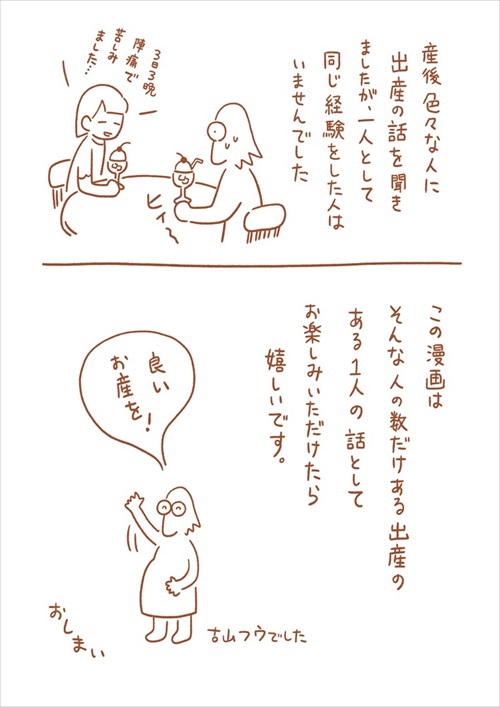 産後色々な人に
出産の話を聞き
ましたが、一人として
同じ経験をした人は
いませんでした
3日3晩
陣痛で
苦しみ
ました…
ヒィ〜
この漫画は
そんな人の数だけある出産の
ある1人の話として
お楽しみいただけたら
嬉しいです。
良い
お産を!
吉山フウでした
おしまい